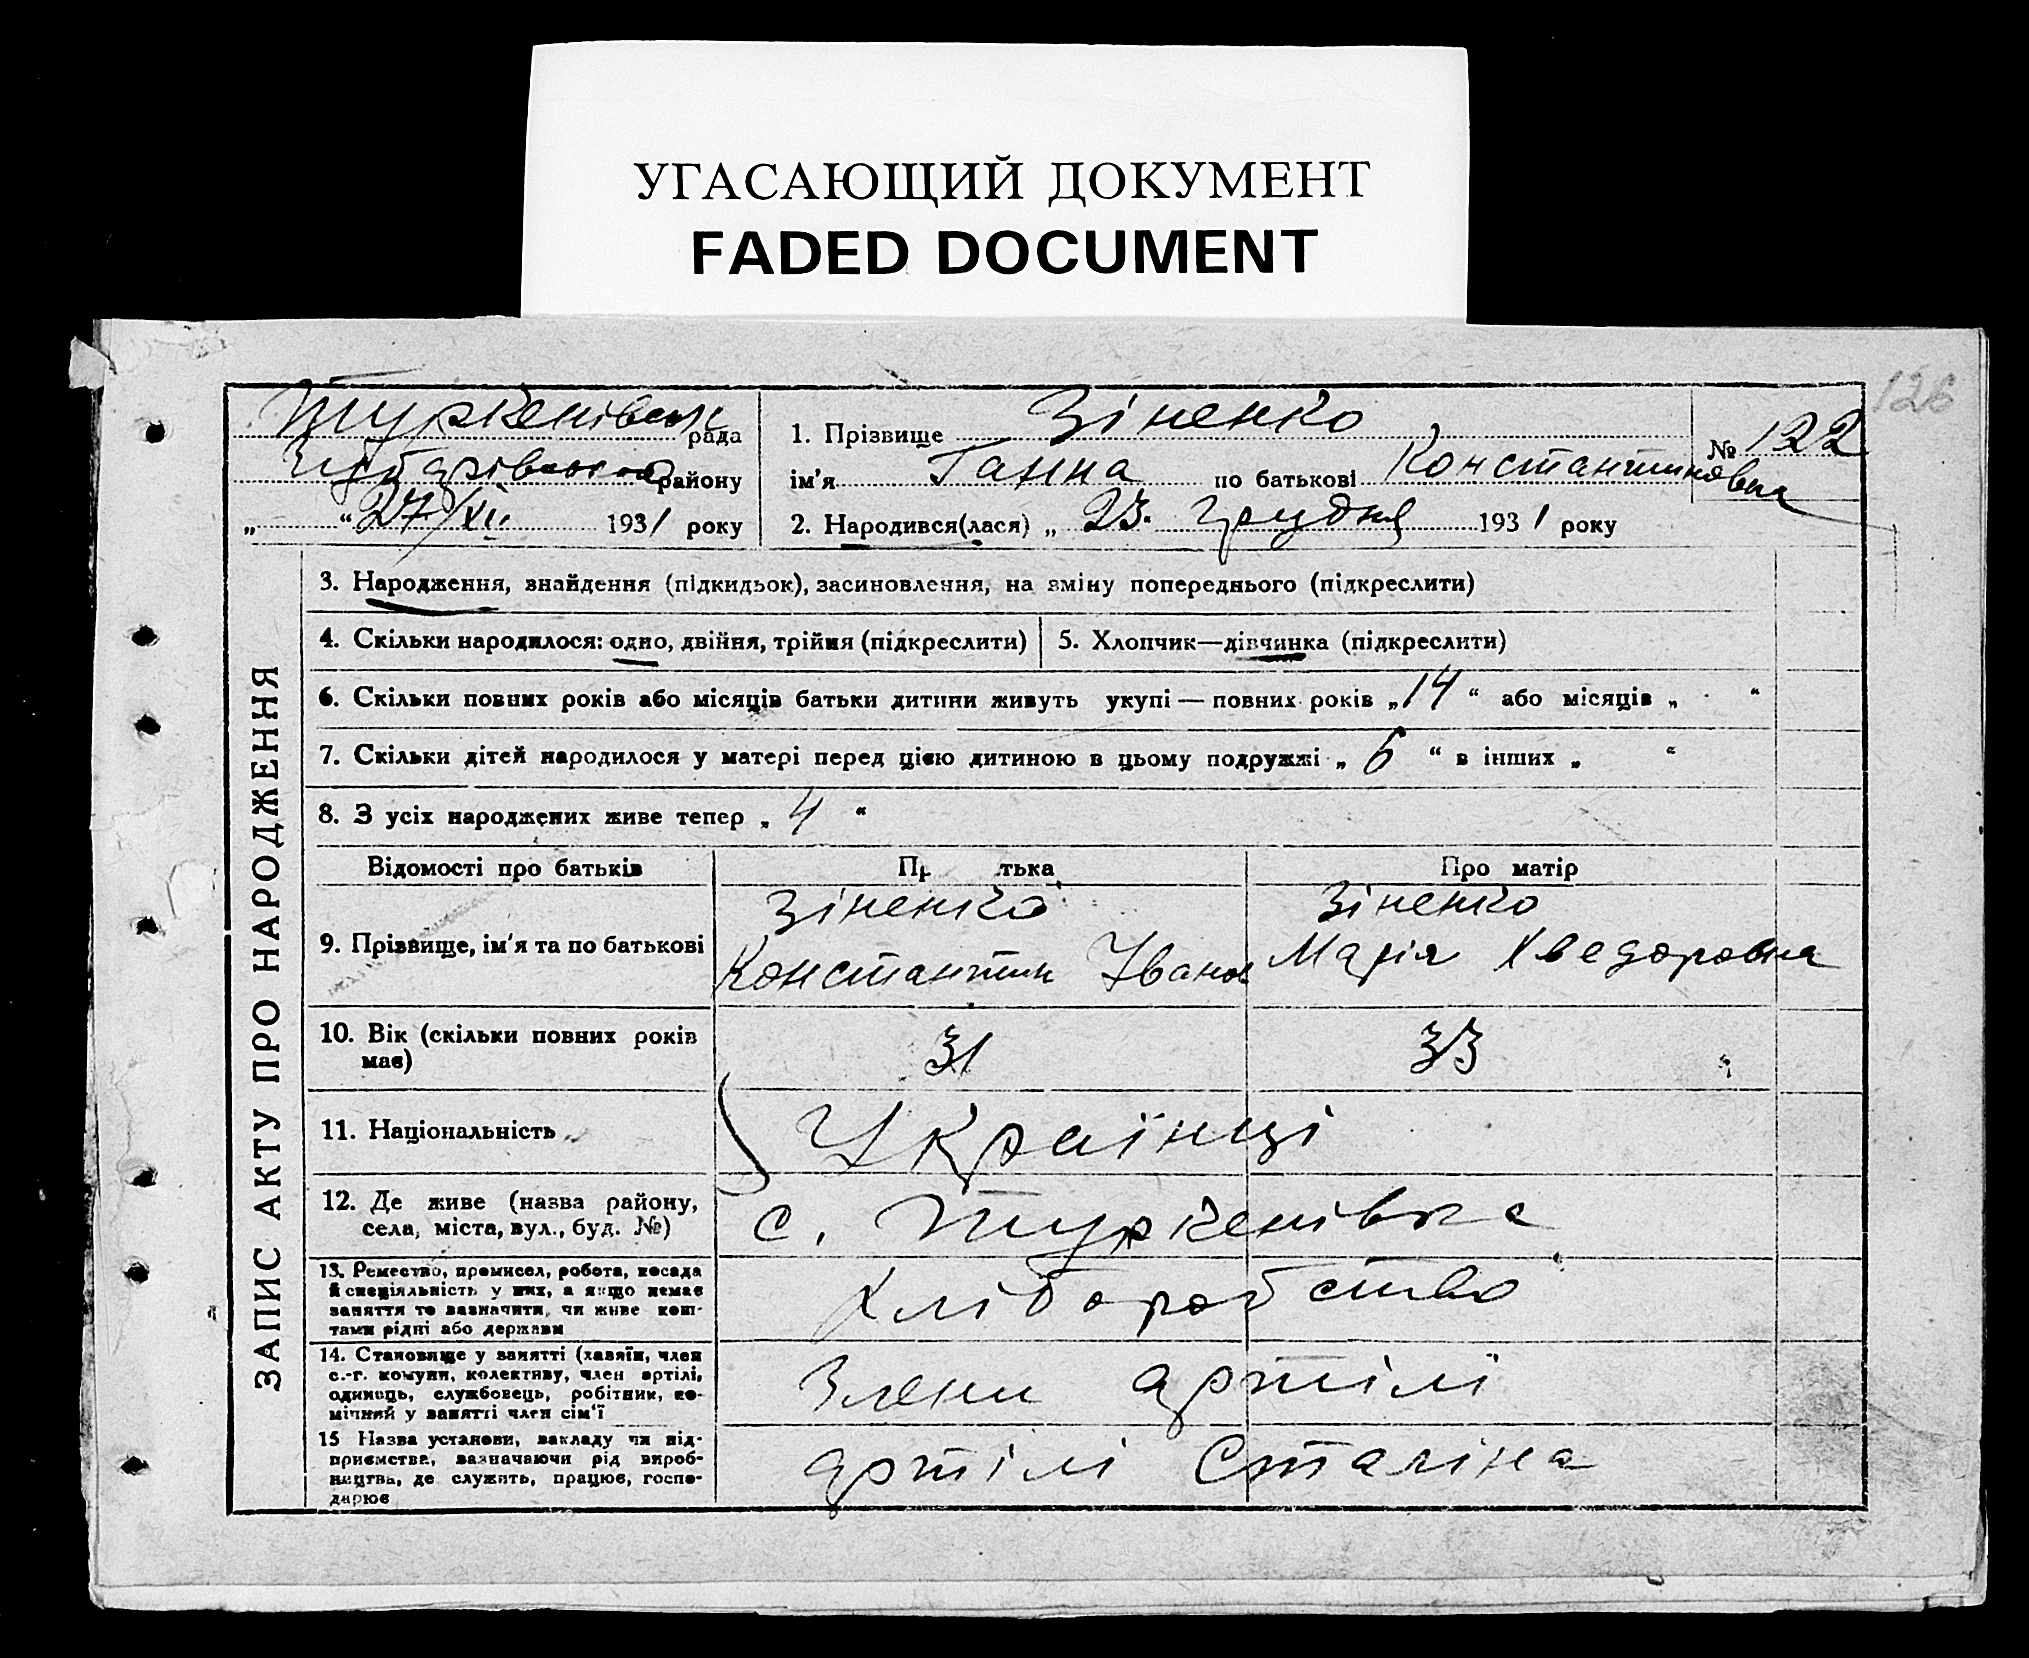 УГАСАЮЩИЙ ДОКУМЕНТ
FADED DOCUMENT
126
Туркенівськ рада
району
„ “ 27/XII 1931 року
1. Прізвище Зіненко
ім’я Ганна по батькові Константиновна
№ 122
2. Народився(лася) „ 23. Грудня 1931 року
ЗАПИС АКТУ ПРО НАРОДЖЕННЯ
3. Народження, знайдення (підкидьок), засиновлення, на зміну попереднього (підкреслити)
4. Скільки народилося: одно, двійня, трійня (підкреслити)
5. Хлопчик—дівчинка (підкреслити)
6. Скільки повних років або місяців батьки дитини живуть укупі — повних років „14“ або місяців „ “
7. Скільки дітей народилося у матері перед цією дитиною в цьому подружжі „ 6 “ в інших „ “
8. З усіх народжених живе тепер „ 4 “
Відомості про батьків
Пр тька
Про матір
9. Прізвище, ім’я та по батькові
Зіненко
Константин Іванов
Зіненко
Марія Хведоровна
10. Вік (скільки повних років
має)
31
33
11. Національність
Українці
12. Де живе (назва району,
села, міста, вул., буд. №)
с. Туркенівка
13. Ремество, промисел, робота, посада
й спеціяльність у них, а якщо немає
заняття то зазначити, чи живе кош-
тами рідні або держави
Хліборобство
14. Становище у занятті (хазяїн, член
с.-г. комуни, колективу, член артілі,
одинець, службовець, робітник, по-
мічний у занятті член сім’ї
Злени артілі
15 Назва установи, закладу чи під-
приємства, зазначаючи рід вироб-
ництва, де служить, працює, госпо-
дарює
артілі Сталіна